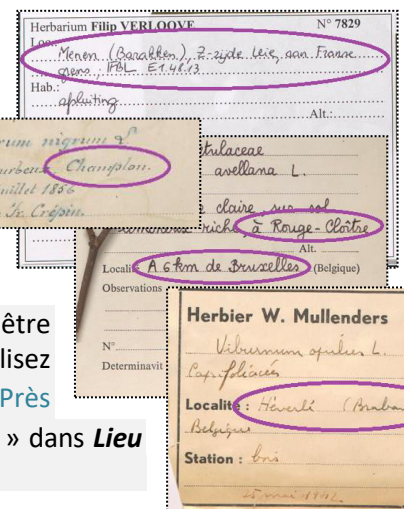 Herbarium Filip VERLOOVE N° 7829
Loc.:
Menen (Barakken), Z-zijde Leie, aan Franse
grens, IFBL E1.48.13
Hab.:
afsluiting
Alt.:
rum nigrum L.
ourbeuse Champlon.
uillet 1856
Fr. Crépin.
tulaceae
avellana L.
claire, sur sol
riche, à Rouge-Cloître
Alt.
Localité A 6 km de Bruxelles (Belgique)
Observations
N°
Determinavit
Herbier W. Mullenders
Viburnum opulus L.
Caprifoliacées
Localité : Héverlé (Braba
Belgique
Station : bois
25 mai 1942
être
lisez
Près
» dans Lieu